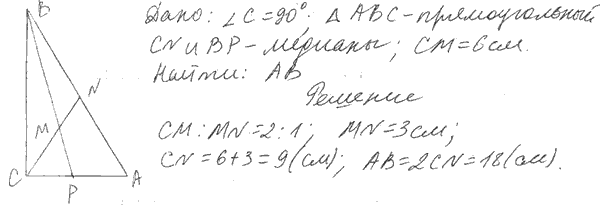 Дано: ∠C=90°; Δ ABC-прямоугольный
CN и BP - медианы; CM=6см.
Найти: AB
Решение
CM:MN=2:1; MN=3см;
CN=6+3=9(см); AB=2CN=18(см).
B
N
M
C
P
A